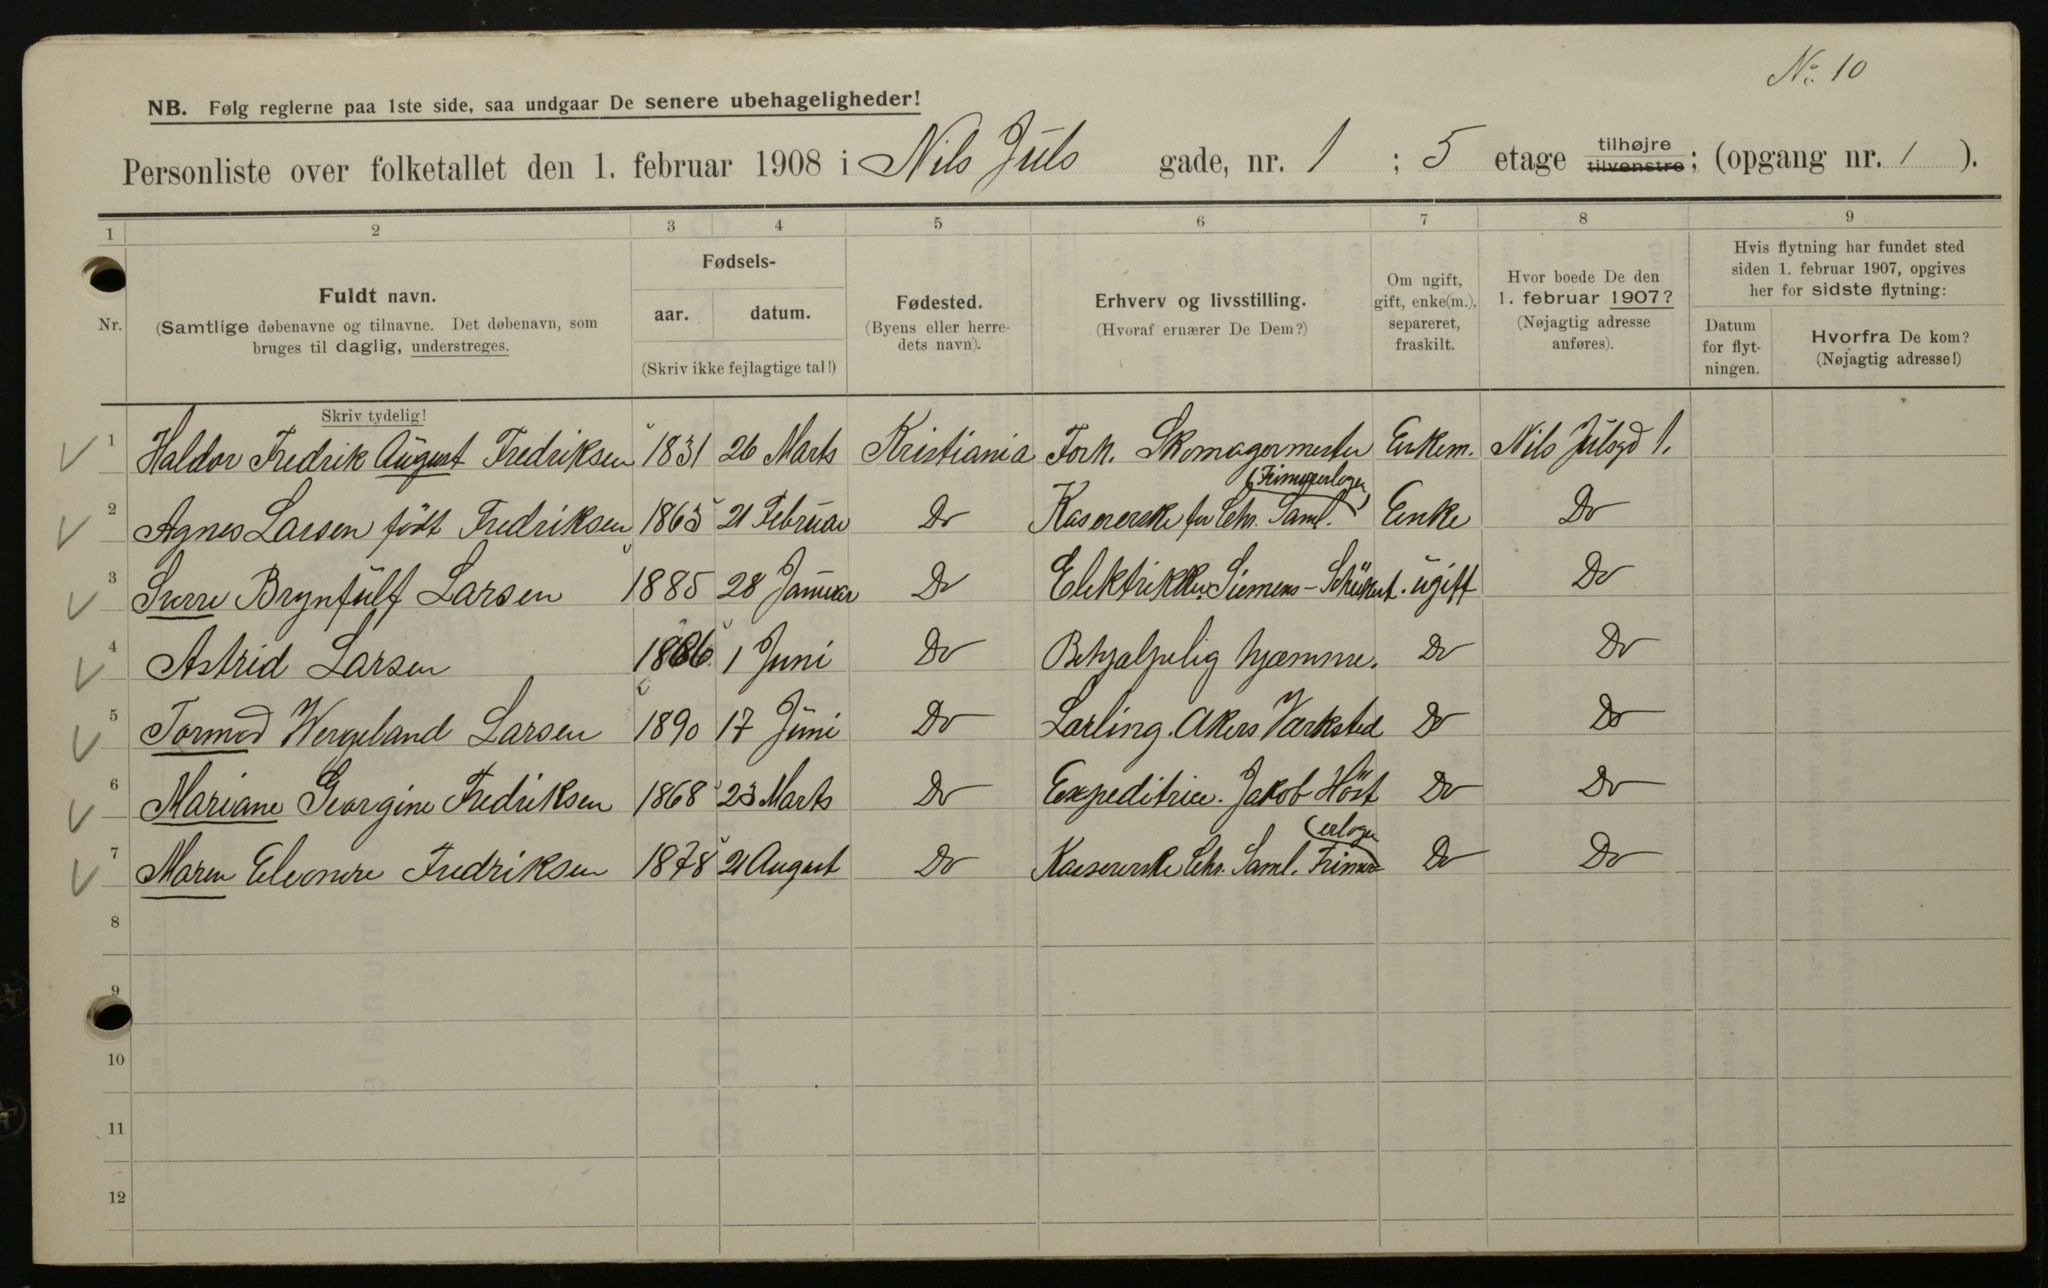 No. 10
NB. Følg reglerne paa 1ste side, saa undgaar De senere ubehageligheder!
Personliste over folketallet den 1. februar 1908 i Nils Juls gade, nr. 1 ; 5 etage tilhøjre tilvenstre; (opgang nr. 1 ).
1 2 3 4 5 6 7 8 9
Nr.
Fuldt navn.
(Samtlige døbenavne og tilnavne. Det døbenavn, som
bruges til daglig, understreges.
Skriv tydelig!
Fødsels-
aar. datum.
(Skriv ikke fejlagtige tal!)
Fødested.
(Byens eller herre-
dets navn).
Erhverv og livsstilling.
(Hvoraf ernærer De Dem?)
Om ugift,
gift, enke(m.),
separeret,
fraskilt.
Hvor boede De den
1. februar 1907?
(Nøjagtig adresse
anføres).
Hvis flytning har fundet sted
siden 1. februar 1907, opgives
her for sidste flytning:
Datum
for flyt-
ningen.
Hvorfra De kom?
(Nøjagtig adresse!)
1 Haldor Fredrik August Fredriksen 1831 26 Marts Kristiania Forh. Skomagermester Enkem. Nils Julsgd 1.
2 Agnes Larsen født Fredriksen 1863 21 Februar Do Kasererske for Chr. Saml. (Frimurerloge) Enke Do
3 Sverre Brynfulf Larsen 1885 28 Januar Do Elektriker Siemens-Schükert. ugift Do
4 Astrid Larsen 1886 1 Juni Do Behjælpelig hjemme. Do Do
5 Tormod Wergeland Larsen 1890 17 Juni Do Lærling. Akers Værksted Do Do
6 Mariane Georgine Fredriksen 1868 23 Marts Do Expeditrice. Jakob Höst Do Do
7 Maren Eleonore Fredriksen 1878 21 August Do Kassererske Chr. Saml. Frimurerloge Do Do
8
9
10
11
12